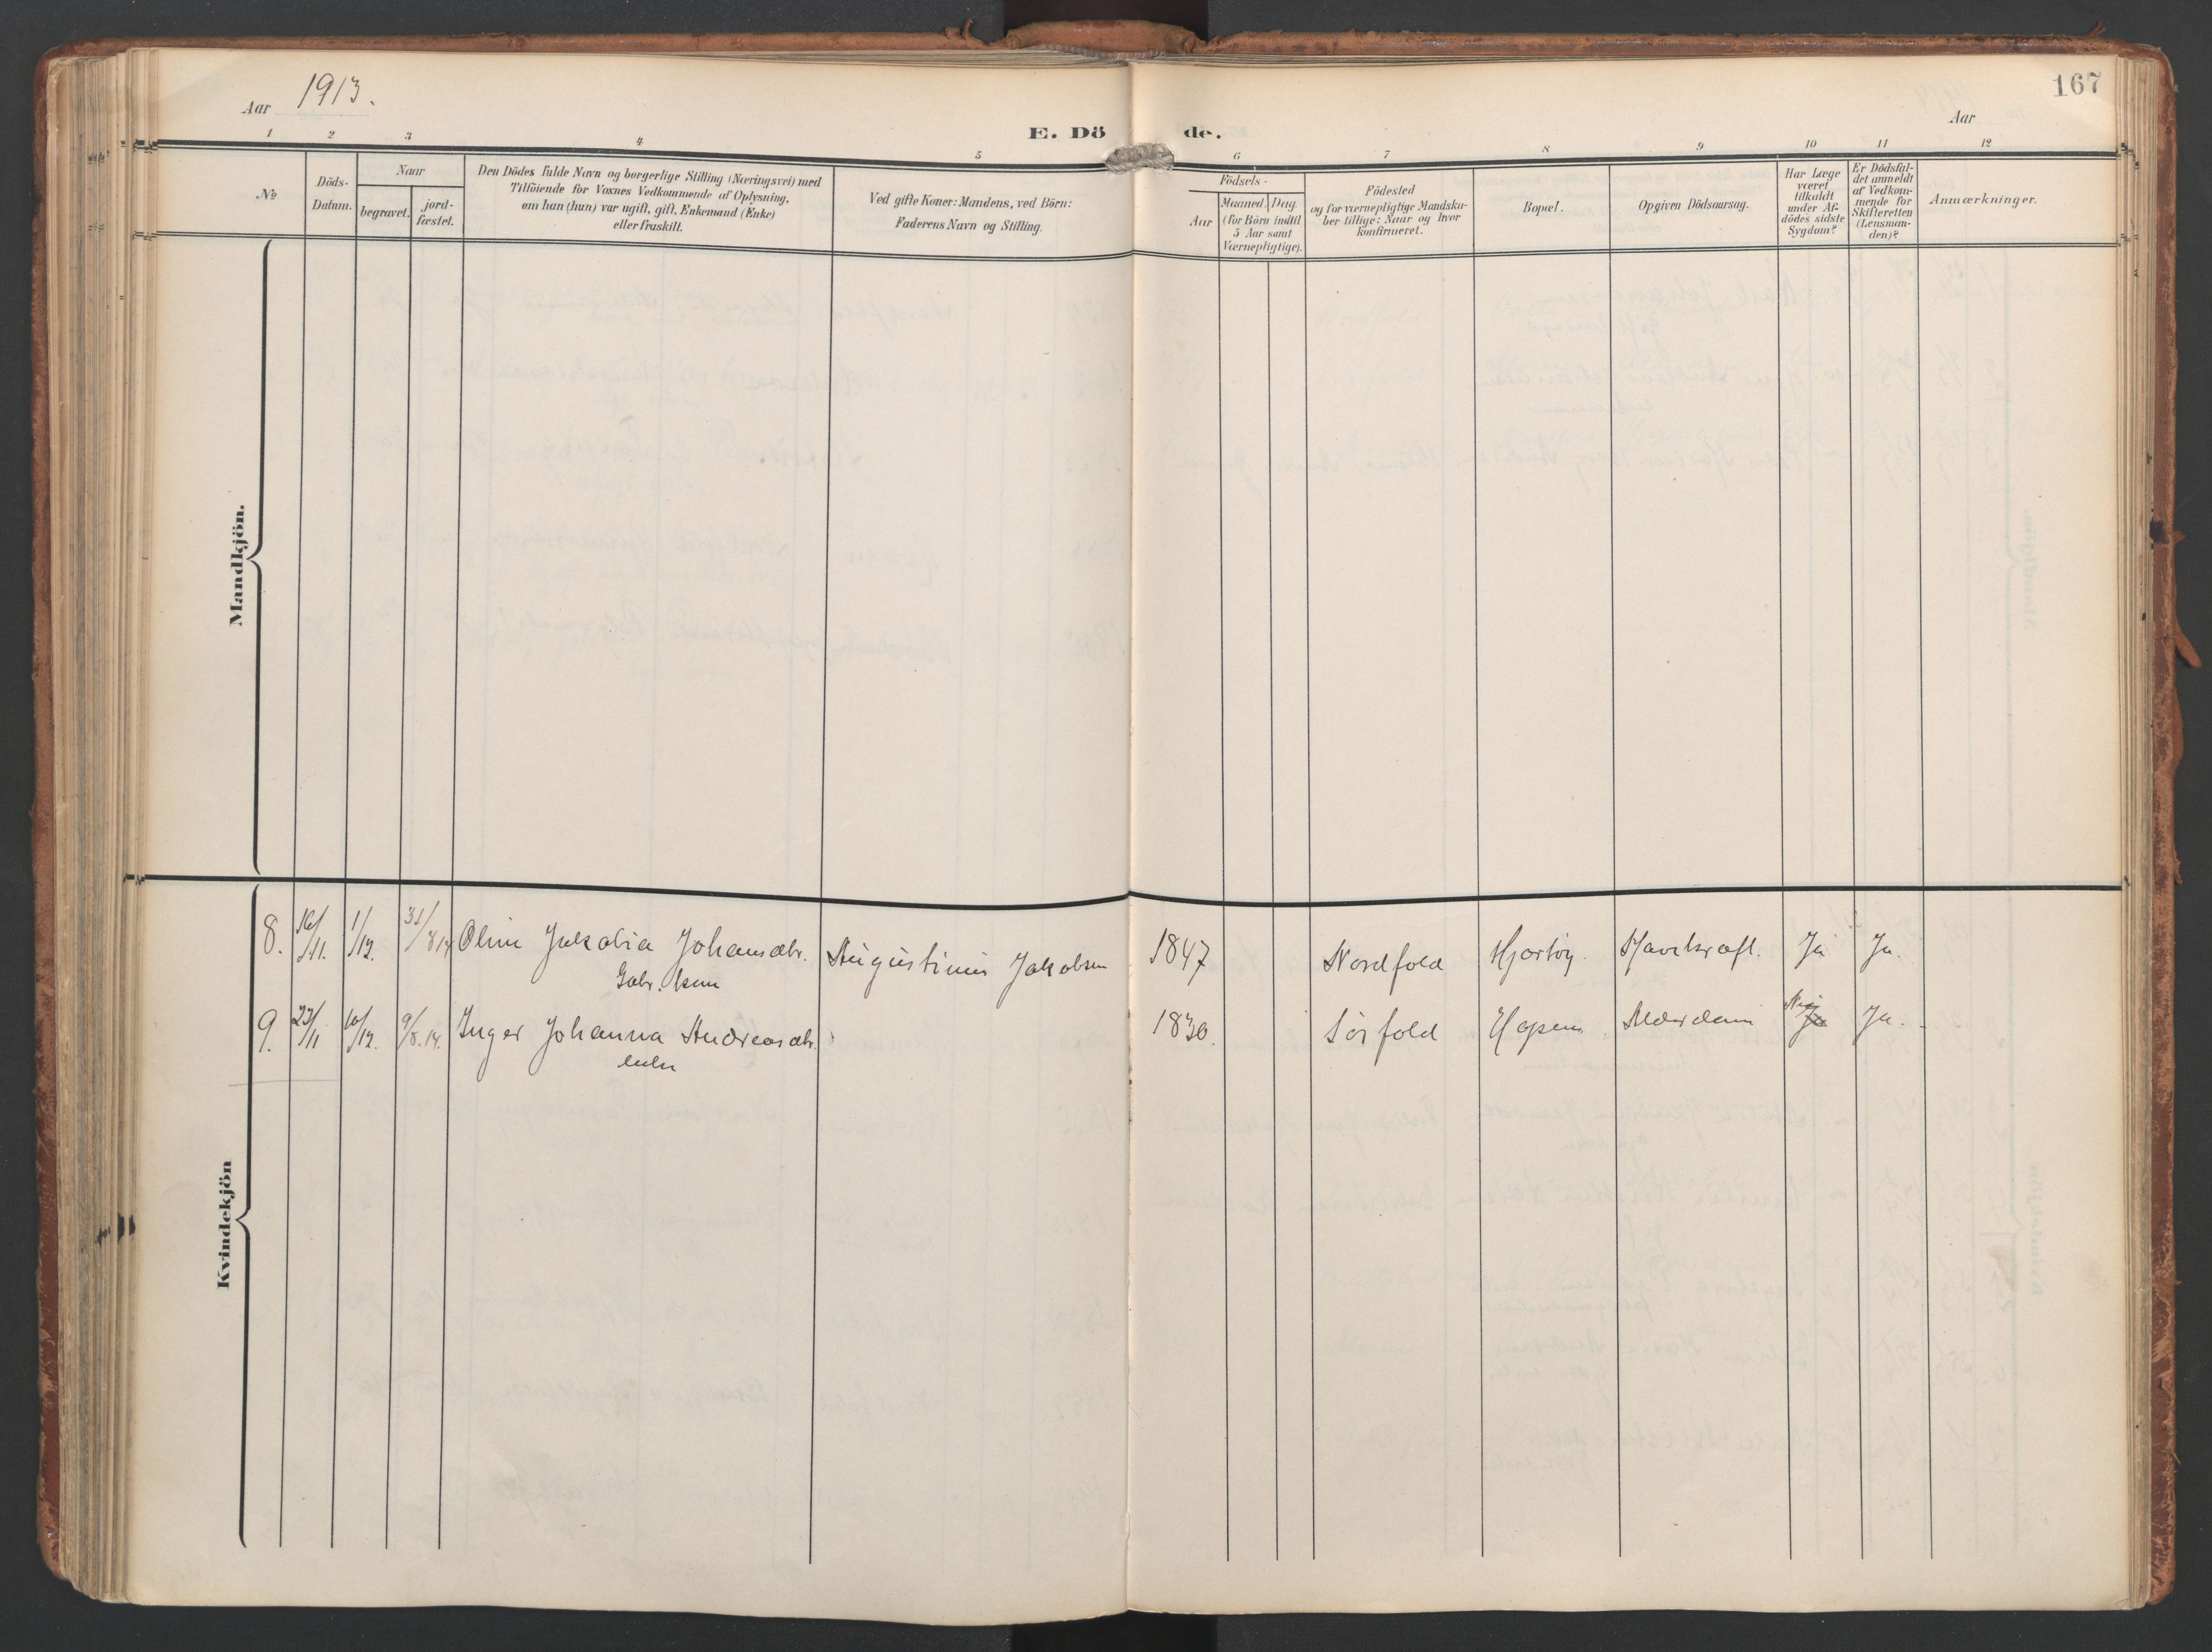 167
Aar 1913.
Aar
E. Dö de.
1 2 3 4 5 6 7 8 9 10 11 12
No
Döds-
Datum.
Naar
begravet.
jord-
fæstet.
Den Dödes fulde Navn og borgerlige Stilling (Næringsvei) med
Tilföiende for Voxnes Vedkommende af Oplysning,
om han (hun) var ugift, gift, Enkemand (Enke)
eller fraskilt.
Ved gifte Koner: Mandens, ved Börn:
Faderens Navn og Stilling.
Födsels-
Aar
Maaned. Dag.
(for Börn indtil
5 Aar samt
Værnepligtige).
Födested
og for værnepligtige Mandska-
ber tillige: Naar og hvor
konfirmeret.
Bopæl.
Opgiven Dödsaarsag.
Har Læge
været
tilkaldt
under Af-
dödes sidste
Sygdom?
Er Dödsfal-
det anmeldt
af Vedkom-
mende for
Skifteretten
(Lensman-
den)?
Anmærkninger.
Mandkjön.
Kvindekjön
8. 16/11. 1/12. 31/8 14 Oline Jakobia Johansdtr. Augustinus Jakobsen 1847 Nordfold Hjartöy. Mavekræft. Ja Ja.
Gbr. kone
9. 23/11 10/12. 9/8.14. Inger Johanna Andreasdtr. 1830. Sörfold Hopen Alderdom Nej Ja Ja.
enke